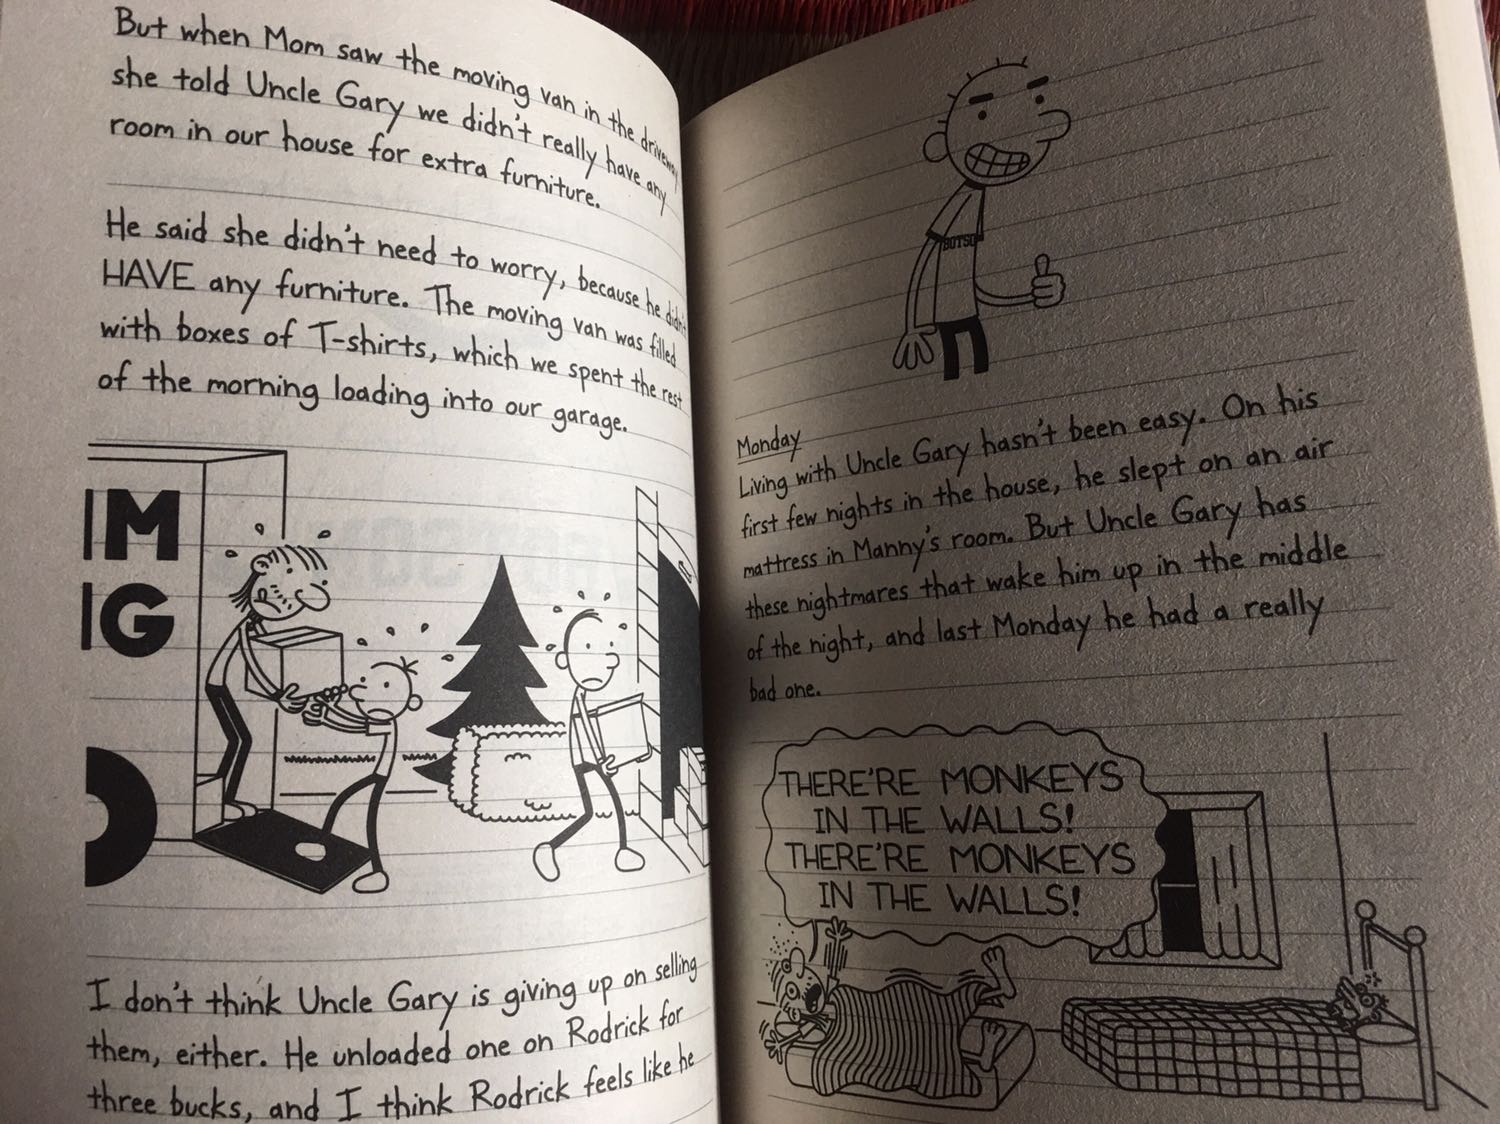 But when Mom saw the moving van in the driveway
she told Uncle Gary we didn't really have any
room in our house for extra furniture.
He said she didn't need to worry, because he didn't
HAVE any furniture. The moving van was filled
with boxes of T-shirts, which we spent the rest
of the morning loading into our garage.
IM
IG
I don't think Uncle Gary is giving up on selling
them, either. He unloaded one on Rodrick for
three bucks, and I think Rodrick feels like he
BOTSO
Monday
Living with Uncle Gary hasn't been easy. On his
first few nights in the house, he slept on an air
mattress in Manny's room. But Uncle Gary has
these nightmares that wake him up in the middle
of the night, and last Monday he had a really
bad one.
THERE'RE MONKEYS
IN THE WALLS!
THERE'RE MONKEYS
IN THE WALLS!